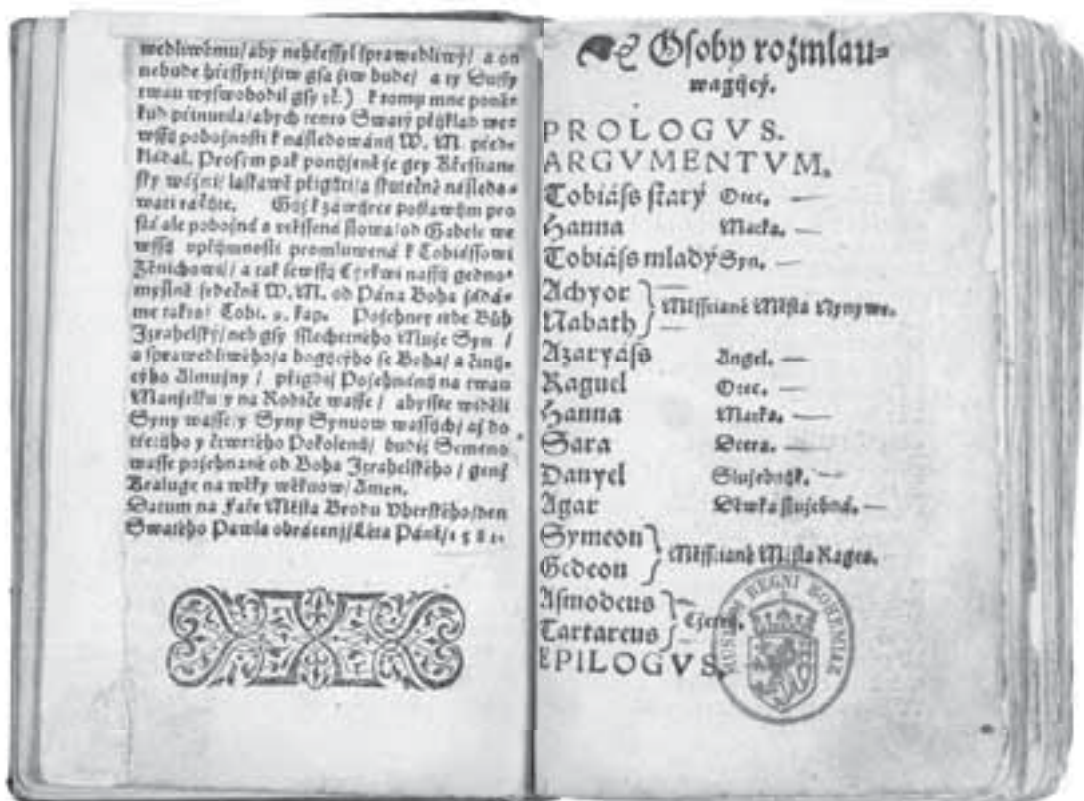 wedliwému/ aby nehřessyl sprawedliwý/ a on
nebude hřessyti/ žiw gsa žiw bude/ a ty Dussy
twau wyswobodil gsy ꝛč.) k tomu mne poně-
kud přinutila/ abych tento Swatý přjklad wet-
wssý pobožnosti k následowánij W. M. před-
kládal. Prosým pak ponjženě že gey Křestian-
sky wážiti/ laskawě přigjti/ a skutečně následo-
wati ráčjte.
sta ale pobožná a potěssená slowa/ od Gabele we
wssý vpřjmnosti promluwená k Tobiássowi
Ženichowi/ a tak sewssý Cyrkwi nassý gedno-
myslně srdečně W. M. od Pána Boha žádá-
me takto: Tobi. 9. kap. Požehney tebe Bůh
Izrahelský/ neb gsy sslechetného Muže Syn /
a sprawedliwého/ a bogýcýho se Boha/ a činý-
cýho Almužny / přigdiž Požehnánij na twau
Manželku y na Rodiče wasse / abysste widěli
Syny wasse/ y Syny Synuow wassých/ až do
třetijho y čtwrtého Pokolenij/ budiž Semeno
wasse požehnané od Boha Izrahelského / genž
Kraluge na wěky wěkuow/ Amen.
Datum na Faře Města Brodu Vherského/ den
Swatého Pawla obrácenij/ Léta Páně/ 1581.
Osoby rozmlau-
wagýcý.
PROLOGVS.
ARGVMENTVM.
Tobiáss starý Otec. —
Hanna Matka. —
Tobiáss mladý Syn. —
Achyor
Nabath
Měssťané Města Nynywe.
Azaryáss Angel. —
Raguel Otec. —
Hanna Matka. —
Sara Dcera. —
Danyel Služebnjk. —
Agar Děwka služebná. —
Symeon
Gedeon
Měssťané Města Rages.
Asmodeus
Tartareus
Czerti.
EPILOGVS.
MUSEUM REGNI BOHEMIAE